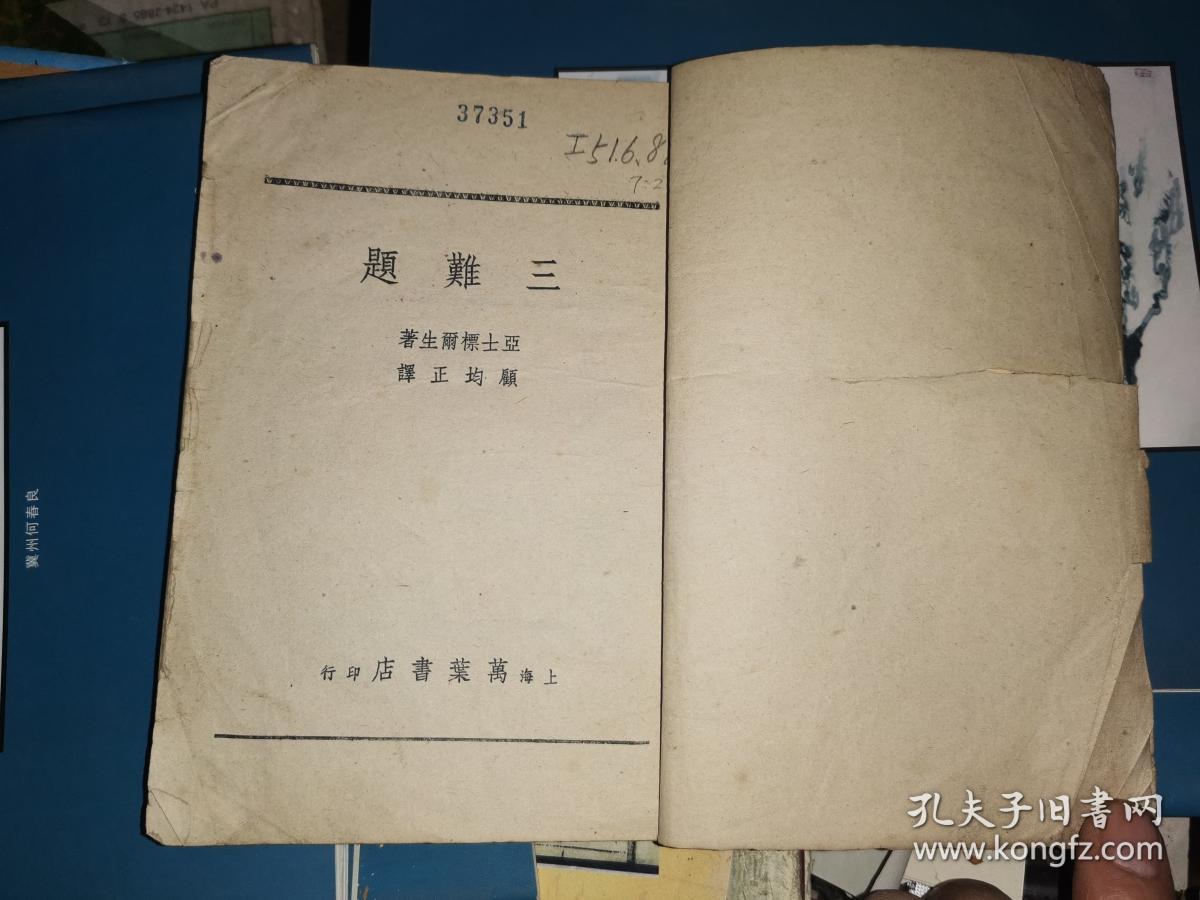 37351
I51.6.8
7-2
三難題
亞士標爾生著
顧均正譯
上海萬葉書店印行
冀州何春良
PA 1424-2885
孔夫子旧书网
www.kongfz.com